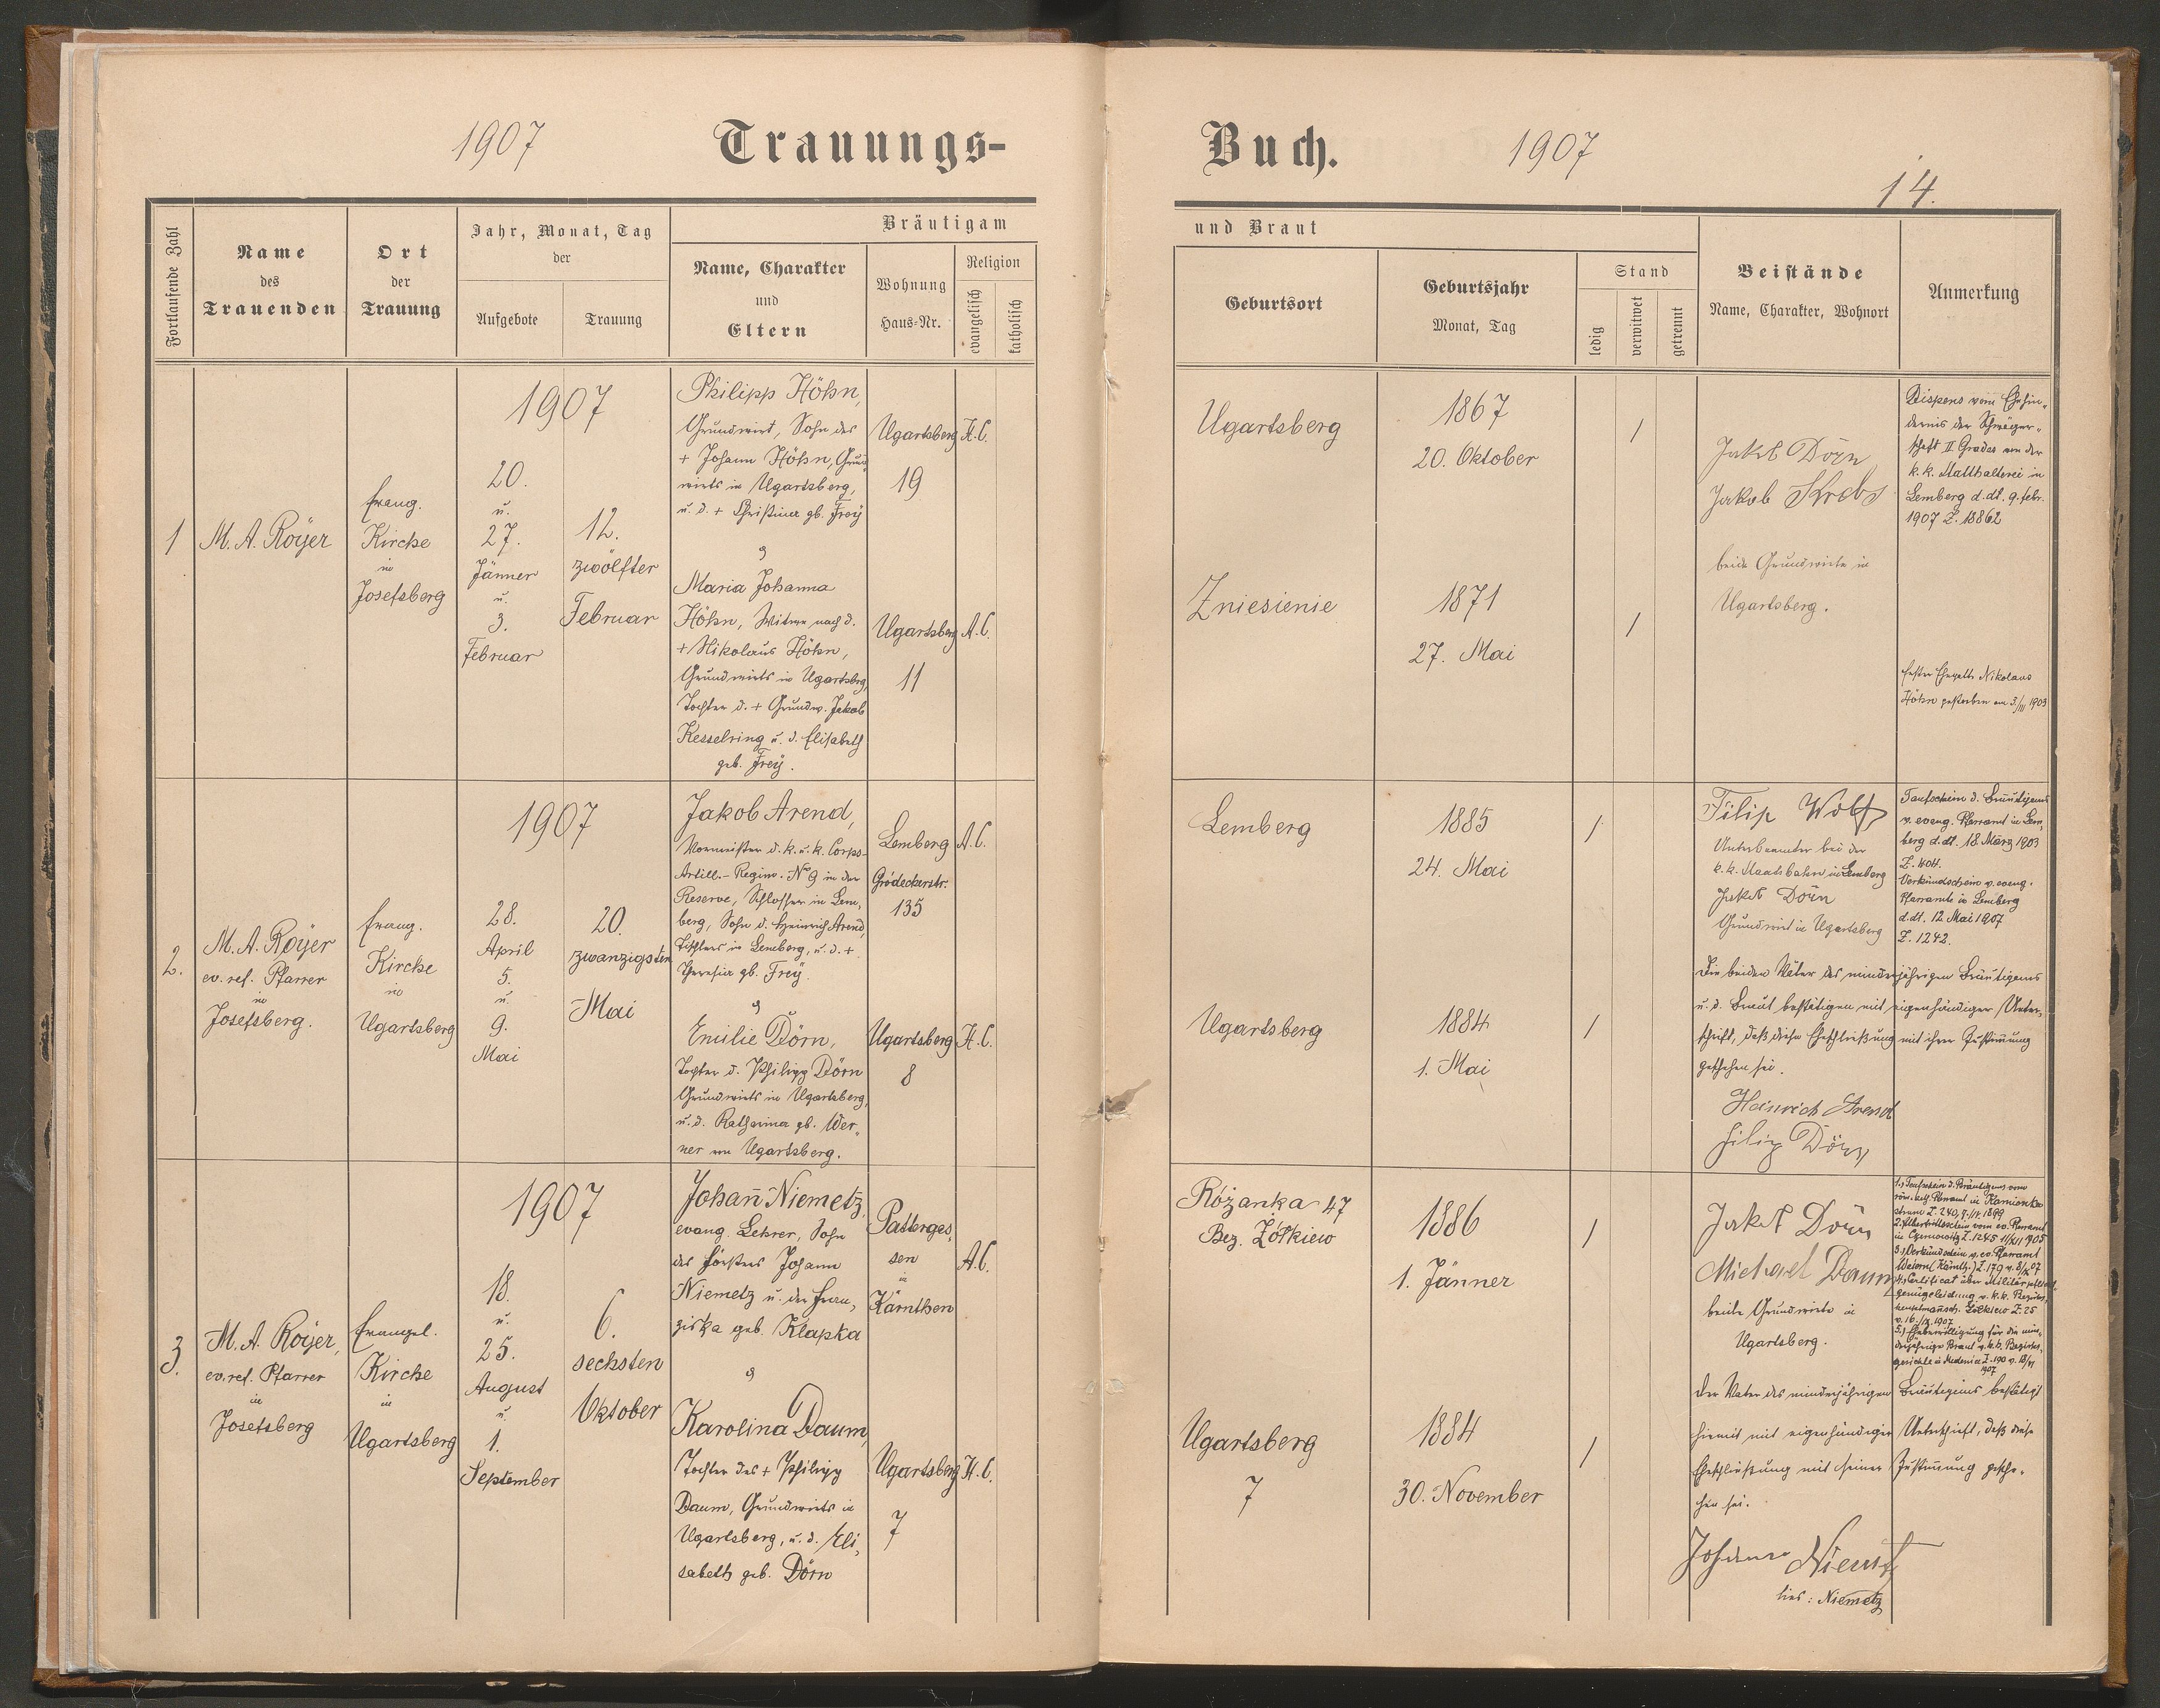 1907
Trauungs-
Fortlaufende Zahl
Name
des
Trauenden
Ort
der
Trauung
Jahr, Monat, Tag
der
Aufgebote
Trauung
Bräutigam
Name, Charakter
und
Eltern
Wohnung
Haus-Nr.
Religion
evangelisch
katholisch
1
M. A. Royer
Evang.
Kirche
in
Josefsberg
1907
20.
u.
27.
Jänner
u.
3.
Februar
12.
zwölfter
Februar
Philipp Höhn,
Grundwirt, Sohn des
+ Johann Höhn, Grund
wirts in Ugartsberg,
u. d. + Christina gb. Frey
&
Maria Johanna
Höhn, Witwe nach d.
+ Nikolaus Höhn,
Grundwirts in Ugartsberg,
Tochter d. + Grundw. Jakob
Kesselring u. d. Elisabeth
geb. Frey.
Ugartsberg
19
H.C.
Ugartsberg
11
A.C.
2.
M. A. Royer
ev. ref. Pfarrer
in
Josefsberg.
Evang.
Kirche
in
Ugartsberg
1907
28.
April
5.
u.
9.
Mai
20.
zwanzigsten
Mai
Jakob Arend,
Vormeister d. k. u. k. Corps-
Artill.-Regim. No 9 in der
Reserve, Schlosser in Lem,
berg, Sohn d. Heinrich Arend,
Tischlers in Lemberg, u. d. +
Theresia gb. Frey.
&
Emilie Dörn,
Tochter d. Philipp Dörn
Grundwirts in Ugartsberg,
u. d. Katharina gb. Wer„
ner von Ugartsberg.
Lemberg
Grodeckerstr.
135
A.C.
Ugartsberg
8
H.C.
3.
M. A. Royer,
ev. ref. Pfarrer
in
Josefsberg
Evangel.
Kirche
in
Ugartsberg
1907
18.
u.
25.
August
u.
1.
September
6.
sechsten
Oktober
Johann Niemetz,
evang. Lehrer, Sohn
des Försters Johann
Niemetz u. der Fran,
ziska geb. Klapka
&
Karolina Daum,
Tochter des + Philipp
Daum, Grundwirts in
Ugartsberg, u. d. Eli,
sabeth geb. Dörn
Patterges,
sen
in
Kärnthen
A.C.
Ugartsberg
7
H.C.
Buch.
1907
14.
und Braut
Geburtsort
Geburtsjahr
Monat, Tag
Stand
ledig
verwitwet
getrennt
Beistände
Name, Charakter, Wohnort
Anmerkung
Ugartsberg
1867
20. Oktober
/
Jakob Dörn
Jakob Krebs
beide Grundwirte in
Ugartsberg.
Dispens vom Ehehin„
dernis der Schwäger„
schaft II. Grades von der
k. k. Statthalterei in
Lemberg d. dt. 9. Febr.
1907 Z. 18862
Zniesienie
1871
27. Mai
/
Erster Ehegatte Nikolaus
Höhn gestorben am 3./III 1903
Lemberg
1885
24. Mai
/
Filip Wolf
Unterbeamter bei der
k. k. Staatsbahn in Lemberg
Jakob Dörn
Grundwirt in Ugartsberg
Taufschein d. Bräutigams
v. evang. Pfarramt in Lem,
berg d. dt. 18. März 1903
Z. 404.
Verkündschein v. evang.
Pfarramte in Lemberg
d. dt. 12 Mai 1907
Z. 1242.
Ugartsberg
1884
1. Mai
/
Die beiden Väter des minderjährigen Bräutigams
u. d. Braut bestätigen mit eigenhändiger Unter,
schrift, daß diese Eheschließung mit ihrer Zustimmung
geschehen sei.
Heinrich Arend
Filip Dörn
Różanka 47
Bez. Żółkiew
1886
1. Jänner
/
Jakob Dörn
Michael Daum
beide Grundwirte in
Ugartsberg.
1.) Taufschein d. Bräutigams vom
röm. kath. Pfarramt in Kamionka
strum. Z. 240, 9./IV. 1899
2. Übertrittsschein vom ev. Pfarramt
in Czernowitz Z. 1245 11/XII 1905
3.) Verkündschein v. ev. Pfarramt
Weiern (Kärnth.) Z. 179 v. 8/IX 07
4.) Certificat über Militärpflicht„
genügeleistung v. k. k. Bezirks,
hauptmannsch. Żółkiew Z. 25
v. 16./IX. 1907
5.) Ehebewilligung für die min,
derjährige Braut v. k. k. Bezirks,
gerichte in Medenice Z. 190 v. 18/VI
1907
Ugartsberg
7
1884
30. November
/
Der Vater des minderjährigen Bräutigams bestätigt
hiemit mit eigenhändiger Unterschrift, daß diese
Eheschließung mit seiner Zustimmung gesche„
hen sei.
Johann Niemetz
lies: Niemetz